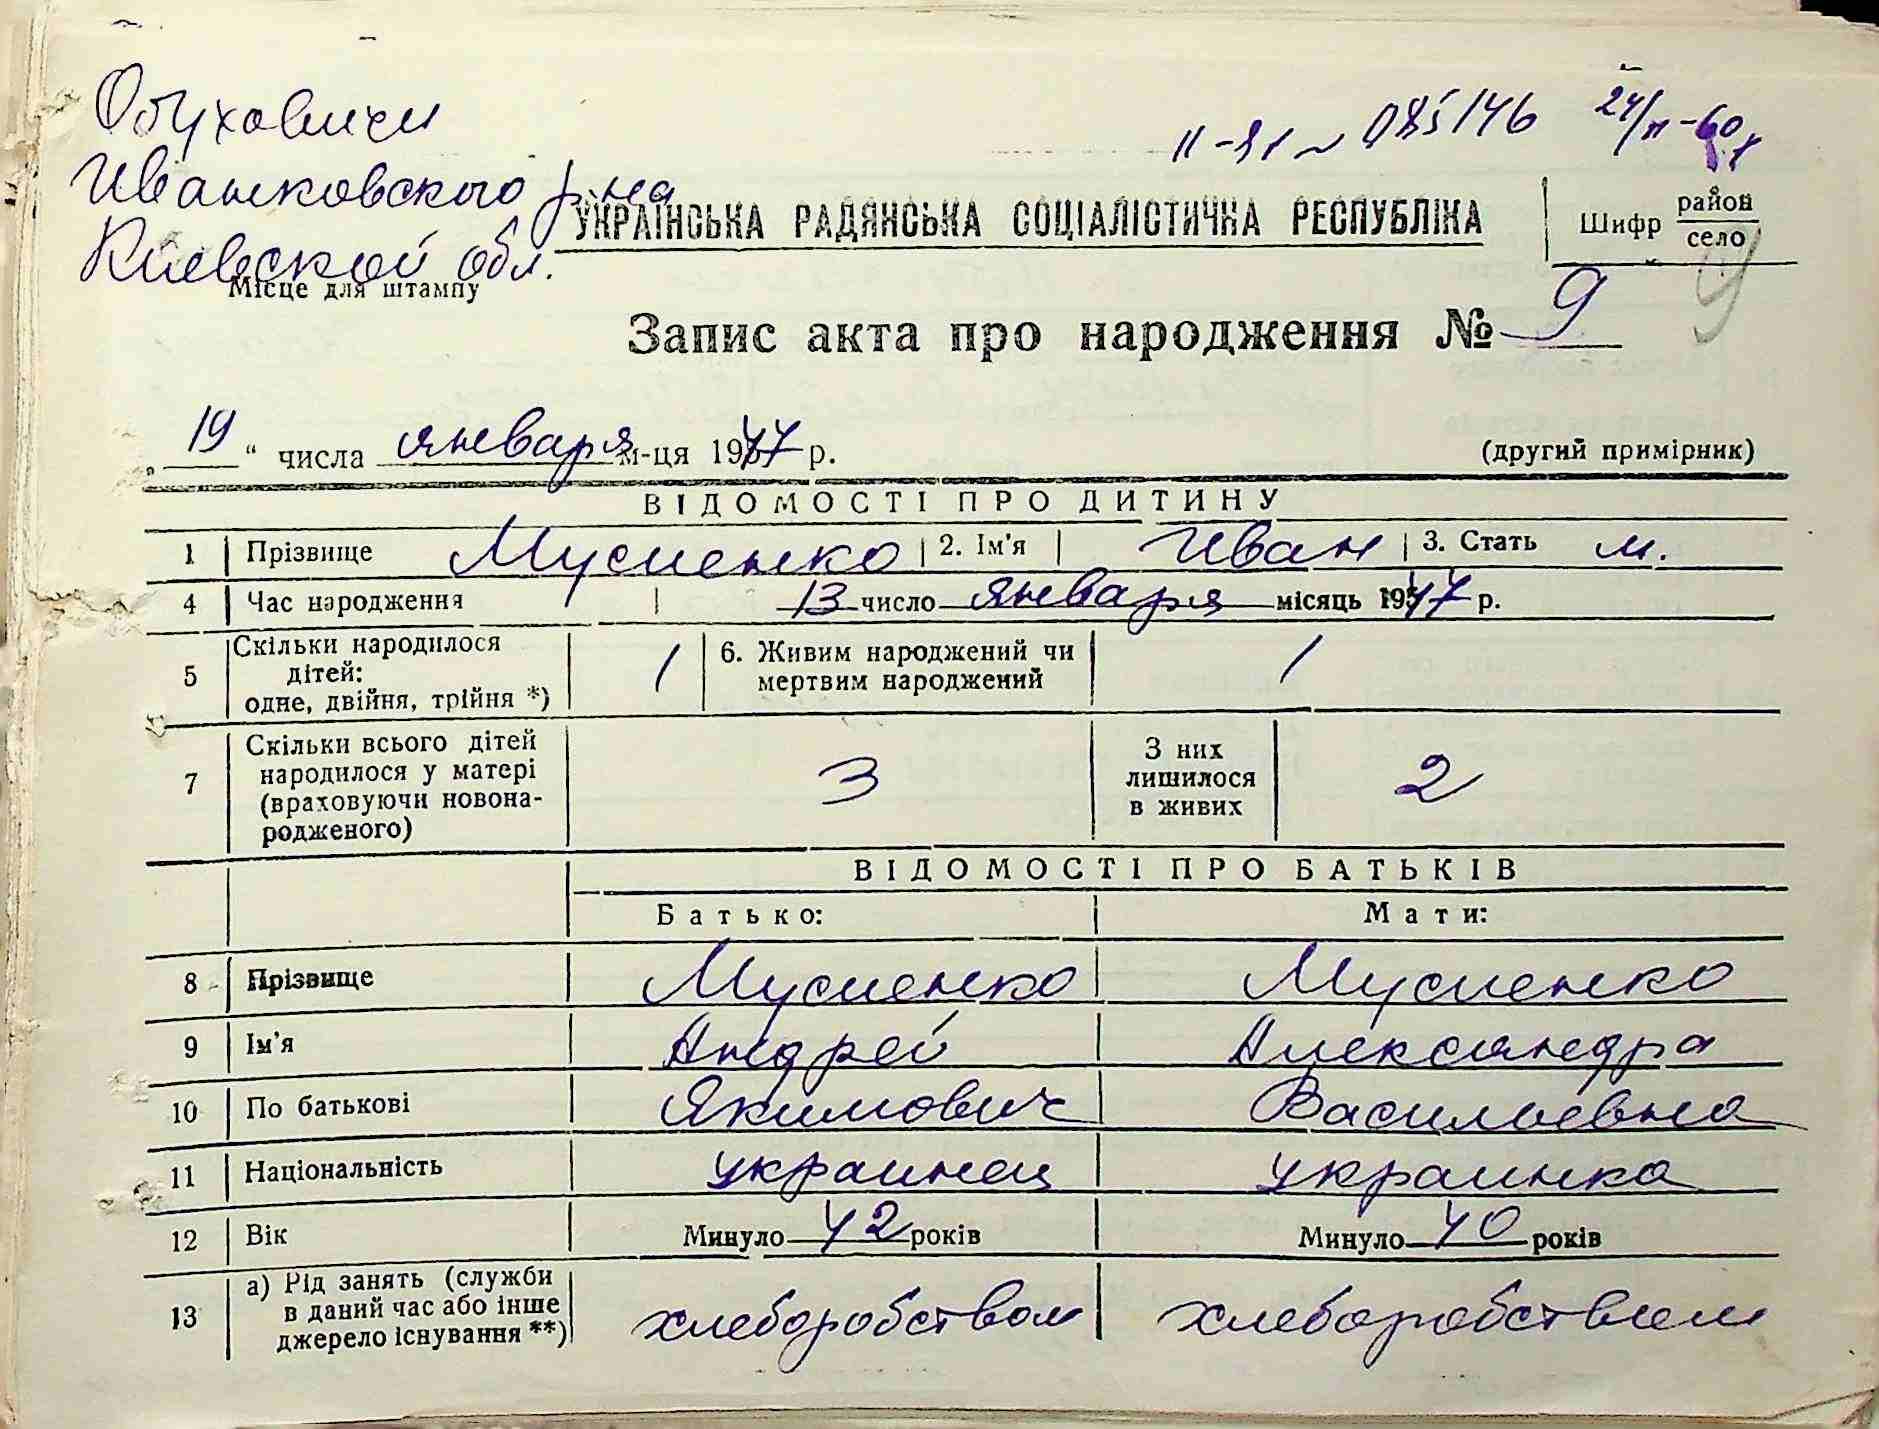 Обуховичи
Иванковского р-на
Киевской обл.
II-ЯІ № 085146 24/II-60 г
УКРАЇНСЬКА РАДЯНСЬКА СОЦІАЛІСТИЧНА РЕСПУБЛІКА
Шифр район
село 9
Місце для штампу
Запис акта про народження № 9
„ 19 “ числа января м-ця 1947 р. (другий примірник)
ВІДОМОСТІ ПРО ДИТИНУ
1 Прізвище Мусиенко 2. Ім'я Иван 3. Стать м.
4 Час народження 13 число января місяць 1947 р.
5 Скільки народилося дітей: одне, двійня, трійня *) 1 6. Живим народжений чи мертвим народжений 1
7 Скільки всього дітей народилося у матері (враховуючи новонародженого) 3 З них лишилося в живих 2
ВІДОМОСТІ ПРО БАТЬКІВ
Батько: Мати:
8 Прізвище Мусиенко Мусиенко
9 Ім'я Андрей Александра
10 По батькові Якимович Васильевна
11 Національність украинец украинка
12 Вік Минуло 42 років Минуло 40 років
13 а) Рід занять (служби в даний час або інше джерело існування **) хлеборобством хлеборобством